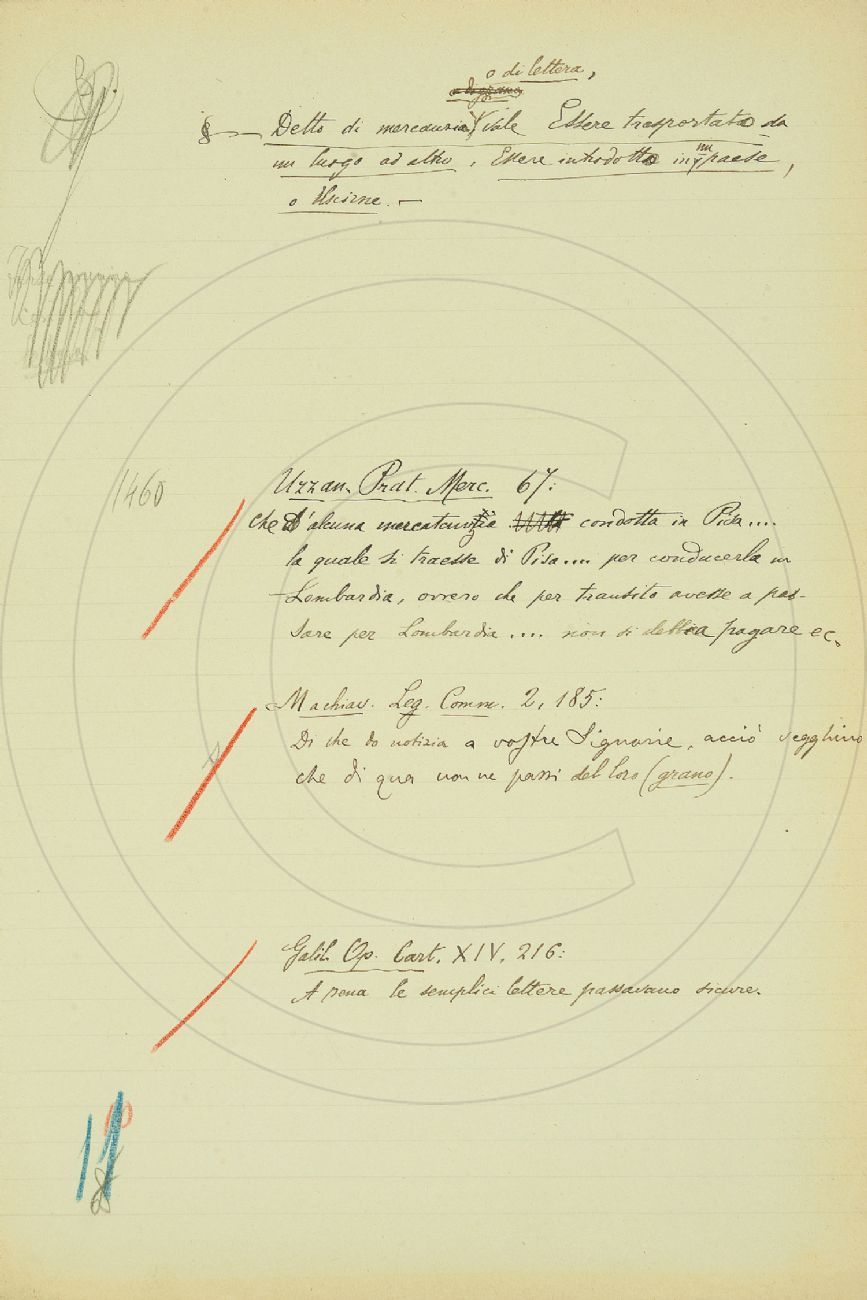 o di lettera,
§ — Detto di mercanzia vale Essere trasportato da
un luogo ad altro, Essere introdotto in un paese,
o Uscirne. —
1460
Uzzan. Prat. Merc. 67:
che d'alcuna mercatanzia condotta in Pisa....
la quale si traesse di Pisa.... per conducerla in
Lombardia, ovvero che per transito avesse a pas-
sare per Lombardia.... non si debbia pagare ec.
Machiav. Leg. Comm. 2, 185:
Di che do notizia a vostre Signorie, acciò vegghino
che di qua non ne passi del loro (grano).
Galil. Op. Cart. XIV, 216:
A pena le semplici lettere passavano sicure.